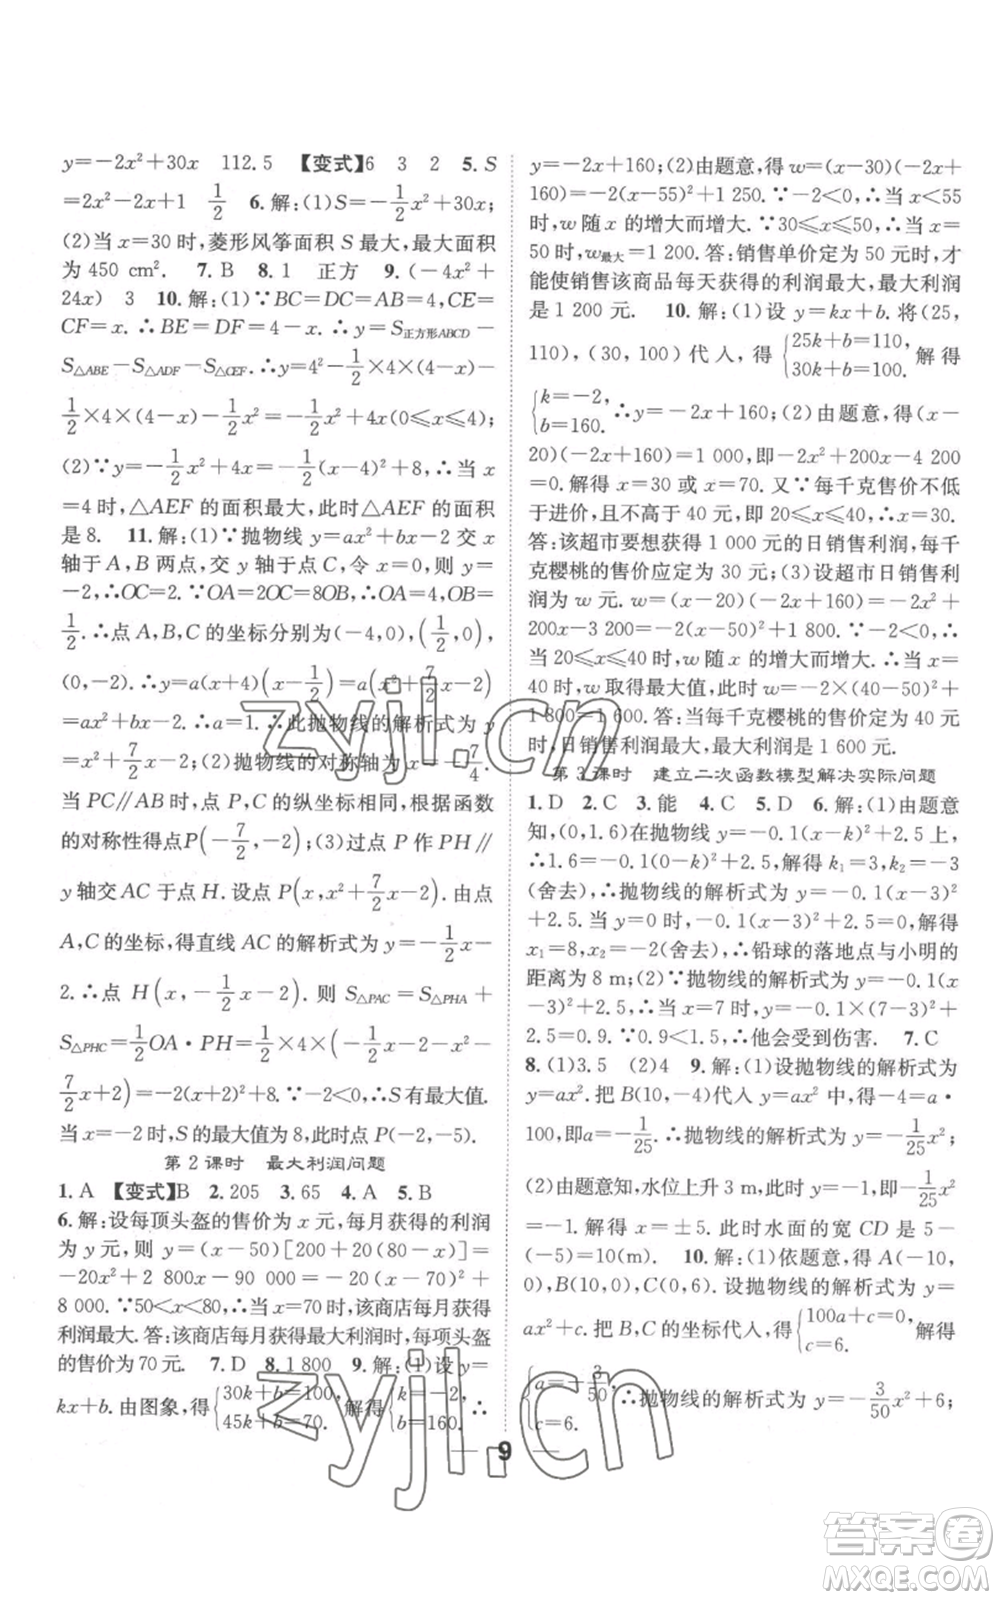 y=-2x²+30x 112.5 【变式】6 3 2 5. S
=2x²-2x+1 1/2 6. 解:(1)S=-1/2x²+30x;
(2)当 x=30 时,菱形风筝面积 S 最大,最大面积
为 450 cm². 7. B 8. 1 正方 9. (-4x²+
24x) 3 10. 解:(1)∵BC=DC=AB=4,CE=
CF=x. ∴BE=DF=4-x. ∴y=S正方形ABCD-
S△ABE-S△ADF-S△CEF. ∴y=4²-1/2×4×(4-x)-
1/2×4×(4-x)-1/2x²=-1/2x²+4x(0≤x≤4);
(2)∵y=-1/2x²+4x=-1/2(x-4)²+8,∴当 x
=4 时,△AEF 的面积最大,此时△AEF 的面积
是 8. 11. 解:(1)∵抛物线 y=ax²+bx-2 交 x
轴于 A,B 两点,交 y 轴于点 C,令 x=0,则 y=
-2,∴OC=2. ∵OA=2OC=8OB,∴OA=4,OB=
1/2. ∴点 A,B,C 的坐标分别为(-4,0),(1/2,0),
(0,-2). ∴y=a(x+4)(x-1/2)=a(x²+7/2x-2)
=ax²+bx-2. ∴a=1. ∴此抛物线的解析式为 y
=x²+7/2x-2;(2)抛物线的对称轴为 x=-7/4.
当 PC∥AB 时,点 P,C 的纵坐标相同,根据函数
的对称性得点P(-7/2,-2);(3)过点 P 作 PH∥
y 轴交 AC 于点 H. 设点 P(x,x²+7/2x-2). 由点
A,C 的坐标,得直线 AC 的解析式为 y=-1/2x-
2. ∴点 H(x,-1/2x-2). 则 S△PAC=S△PHA+
S△PHC=1/2OA·PH=1/2×4×(-1/2x-2-x²-
7/2x+2)=-2(x+2)²+8. ∵-2<0,∴S有最大值.
当 x=-2 时,S的最大值为 8,此时点 P(-2,-5).
第 2 课时 最大利润问题
1. A 【变式】B 2. 205 3. 65 4. A 5. B
6. 解:设每顶头盔的售价为 x 元,每月获得的利润
为 y 元,则 y=(x-50)[200+20(80-x)]=
-20x²+2 800x-90 000=-20(x-70)²+
8 000. ∵50<x<80,∴当 x=70 时,该商店每月获得
利润最大. 答:该商店每月获得最大利润时,每顶头盔
的售价为 70 元. 7. D 8. 1 800 9. 解:(1)设 y=
kx+b. 由图象,得{30k+b=100, 45k+b=70. 解得{k=-2, b=160. ∴
y=-2x+160;(2)由题意,得 w=(x-30)(-2x+
160)=-2(x-55)²+1 250. ∵-2<0,∴当 x<55
时,w 随 x 的增大而增大. ∵30≤x≤50,∴当 x=
50 时,w最大=1 200. 答:销售单价定为 50 元时,才
能使销售该商品每天获得的利润最大,最大利润
是 1 200 元. 10. 解:(1)设 y=kx+b. 将(25,
110),(30,100)代入,得{25k+b=110, 30k+b=100. 解得
{k=-2, b=160. ∴y=-2x+160;(2)由题意,得(x-
20)(-2x+160)=1 000,即-2x²+200x-4 200
=0. 解得 x=30 或 x=70. 又∵每千克售价不低
于进价,且不高于 40 元,即 20≤x≤40,∴x=30.
答:该超市要想获得 1 000 元的日销售利润,每千
克樱桃的售价应定为 30 元;(3)设超市日销售利
润为 w 元. w=(x-20)(-2x+160)=-2x²+
200x-3 200=-2(x-50)²+1 800. ∵-2<0,∴
当 20≤x≤40 时,w 随 x 的增大而增大. ∴当 x=
40 时,w 取得最大值,此时 w=-2×(40-50)²+
1 800=1 600. 答:当每千克樱桃的售价定为 40 元
时,日销售利润最大,最大利润是 1 600 元.
第 3 课时 建立二次函数模型解决实际问题
1. D 2. C 3. 能 4. C 5. D 6. 解:(1)由题意
知,(0,1.6)在抛物线 y=-0.1(x-k)²+2.5 上,
∴1.6=-0.1(0-k)²+2.5. 解得 k₁=3,k₂=-3
(舍去),∴抛物线的解析式为 y=-0.1(x-3)²
+2.5. 当 y=0 时,-0.1(x-3)²+2.5=0. 解得
x₁=8,x₂=-2(舍去),∴铅球的落地点与小明的
距离为 8 m;(2)∵抛物线的解析式为 y=-0.1(x
-3)²+2.5,∴当 x=7 时,y=-0.1×(7-3)²+
2.5=0.9. ∵0.9<1.5,∴他会受到伤害. 7. C
8. (1)3.5 (2)4 9. 解:(1)设抛物线的解析式为
y=ax². 把 B(10,-4)代入 y=ax² 中,得-4=a·
100,即a=-1/25. ∴抛物线的解析式为 y=-1/25x²;
(2)由题意知,水位上升 3 m,此时,y=-1,即-1/25x²
=-1. 解得 x=±5. 此时水面的宽 CD 是 5-
(-5)=10(m). 10. 解:(1)依题意,得 A(-10,
0),B(10,0),C(0,6). 设抛物线的解析式为 y=
ax²+c. 把 B,C 的坐标代入,得{100a+c=0, c=6. 解得
{a=-3/50, c=6. ∴抛物线的解析式为 y=-3/50x²+6;
9
zyjl.cn
zyjl.cn
答案圈
MXQE.COM